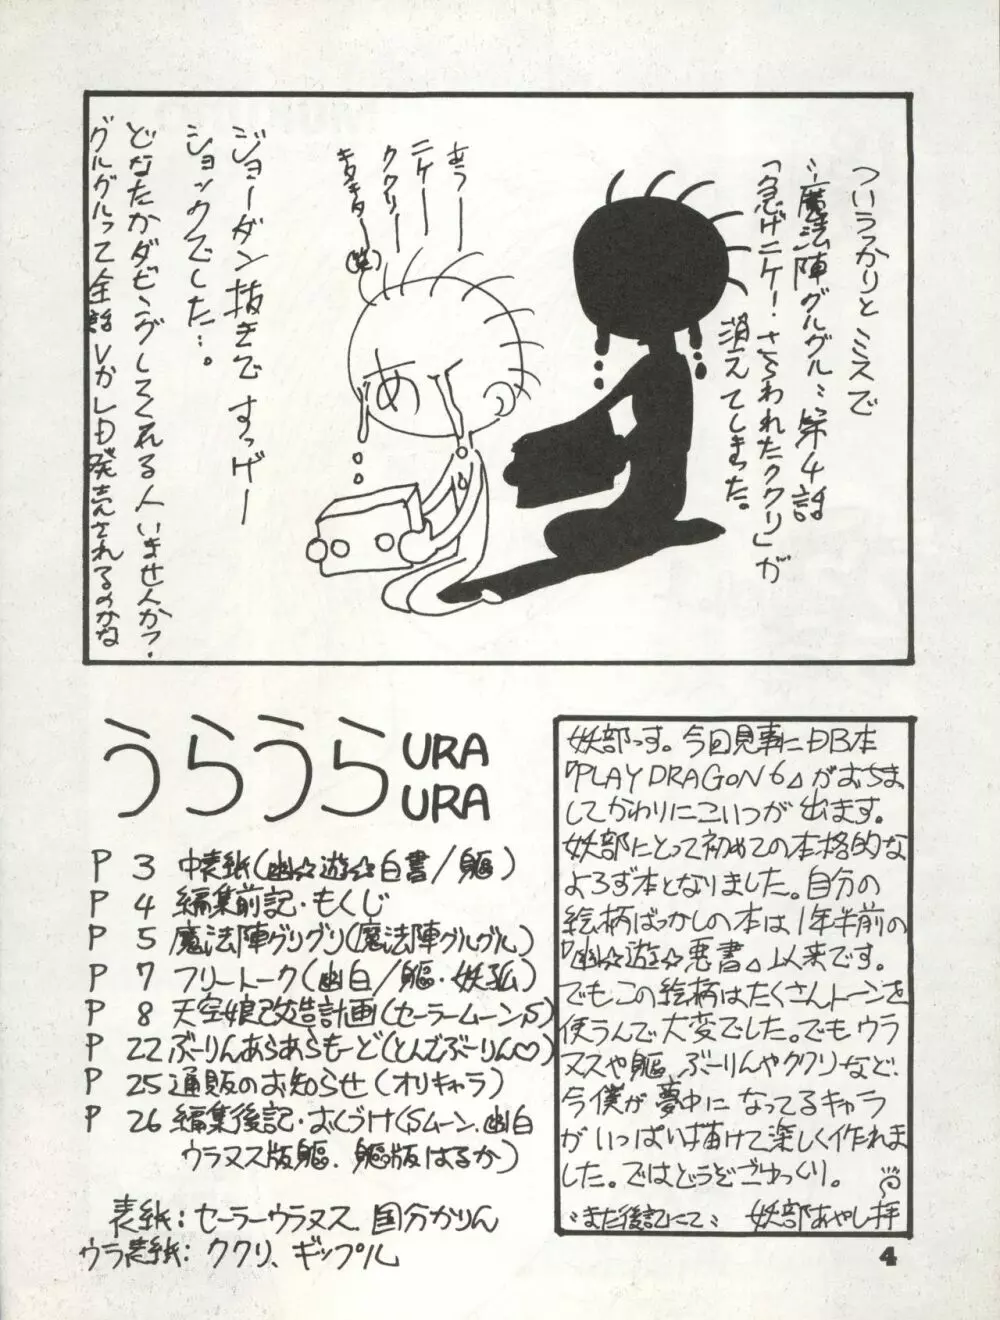 ついうっかりとミスで
〝魔法陣グルグル〟第4話
「急げニケ!さらわれたククリ」が
消えてしまった。
あうーー
ニケーー
ククリーー
キタキター(笑)
ジョーダン抜きですっげー
ショックでした…。
どなたかダビングしてくれる人いませんか?
グルグルって全話VかLD発売されるのかな
め
うらうら URA URA
P 3 中表紙(幽☆遊☆白書/軀)
P 4 編集前記・もくじ
P 5 魔法陣グリグリ(魔法陣グルグル)
P 7 フリートーク(幽白/軀・妖狐)
P 8 天空娘改造計画(セーラームーンS)
P 22 ぶーりんあらあらもーど(とんでぶーりん♡)
P 25 通販のお知らせ(オリキャラ)
P 26 編集後記・おくづけ(Sムーン.幽白
ウラヌス版軀.軀版はるか)
表紙:セーラーウラヌス.国分かりん
ウラ表紙:ククリ、ギップル
妖部っす。今回見事にDB本
『PLAY DRAGON 6』がおちま
してかわりにこいつが出ます。
妖部にとって初めての本格的な
よろず本となりました。自分の
絵柄ばっかしの本は1年半前の
『幽☆遊☆悪書』以来です。
でもこの絵柄はたくさんトーンを
使うんで大変でした。でもウラ
ヌスや軀、ぶーりんやククリなど、
今僕が夢中になってるキャラ
がいっぱい描けて楽しく作れま
した。ではどうぞごゆっくり。
〝また後記にて〟 妖部あやし拝
4